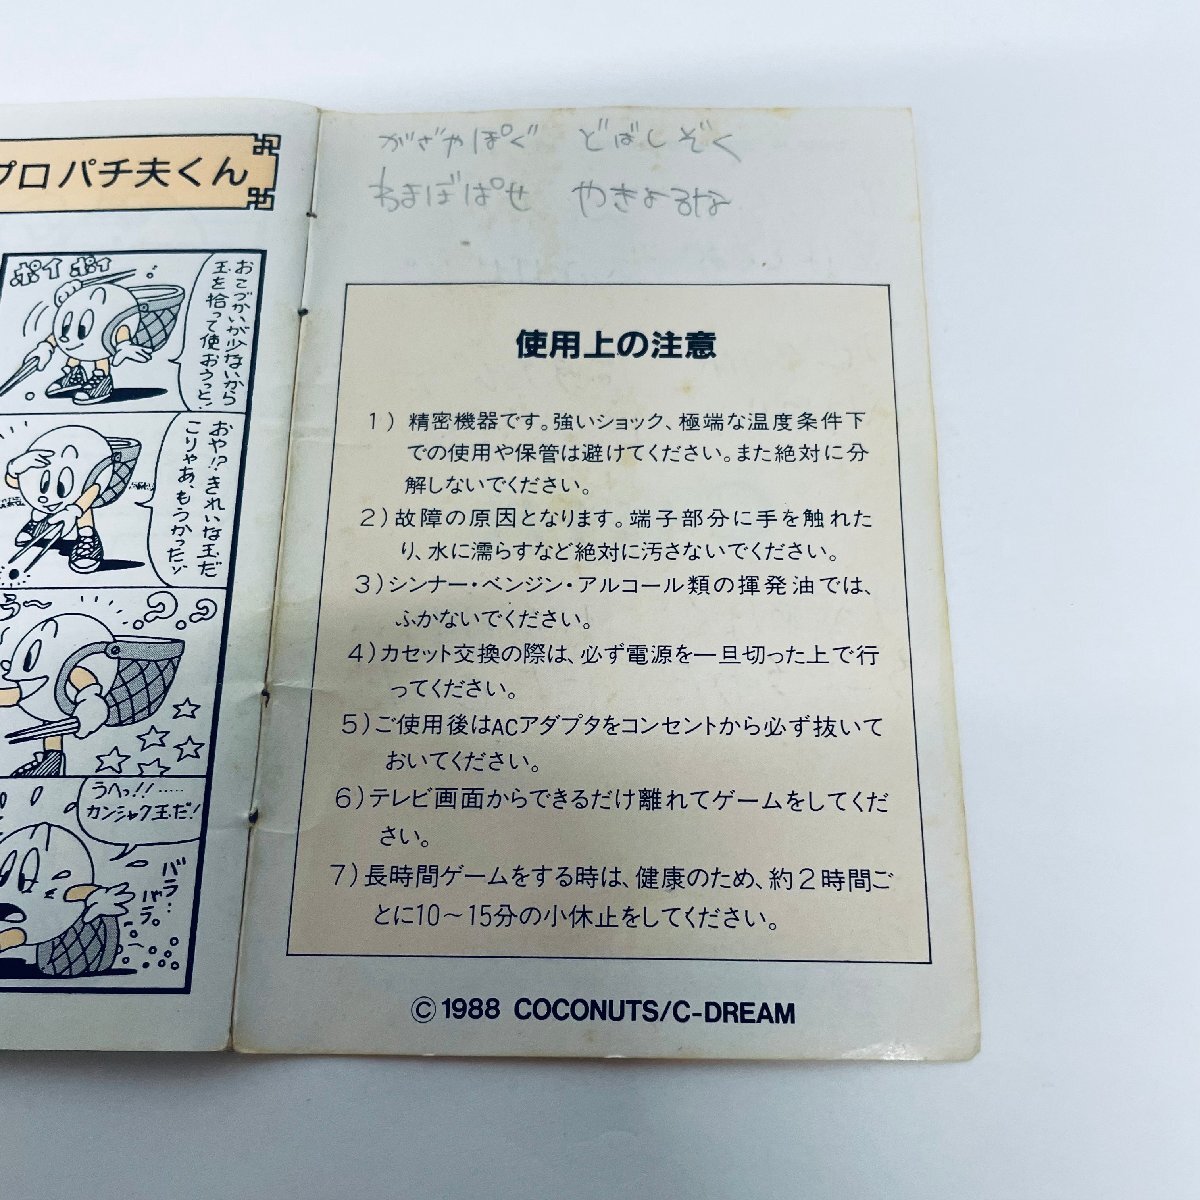 プロパチ夫くん
ポイ ポイ
おこづかいが少ないから
玉を拾って使おうっと!
おや!?きれいな玉だ
こりゃあ、もうかったゾ
うへっ!!……
カンシャク玉だ!
バラ…
バラ。
がざやぱぐ どばしぞく
わまぼぱせ やきよるな
使用上の注意
1) 精密機器です。強いショック、極端な温度条件下
での使用や保管は避けてください。また絶対に分
解しないでください。
2) 故障の原因となります。端子部分に手を触れた
り、水に濡らすなど絶対に汚さないでください。
3) シンナー・ベンジン・アルコール類の揮発油では、
ふかないでください。
4) カセット交換の際は、必ず電源を一旦切った上で行
ってください。
5) ご使用後はACアダプタをコンセントから必ず抜いて
おいてください。
6) テレビ画面からできるだけ離れてゲームをしてくだ
さい。
7) 長時間ゲームをする時は、健康のため、約2時間ご
とに10〜15分の小休止をしてください。
© 1988 COCONUTS/C-DREAM